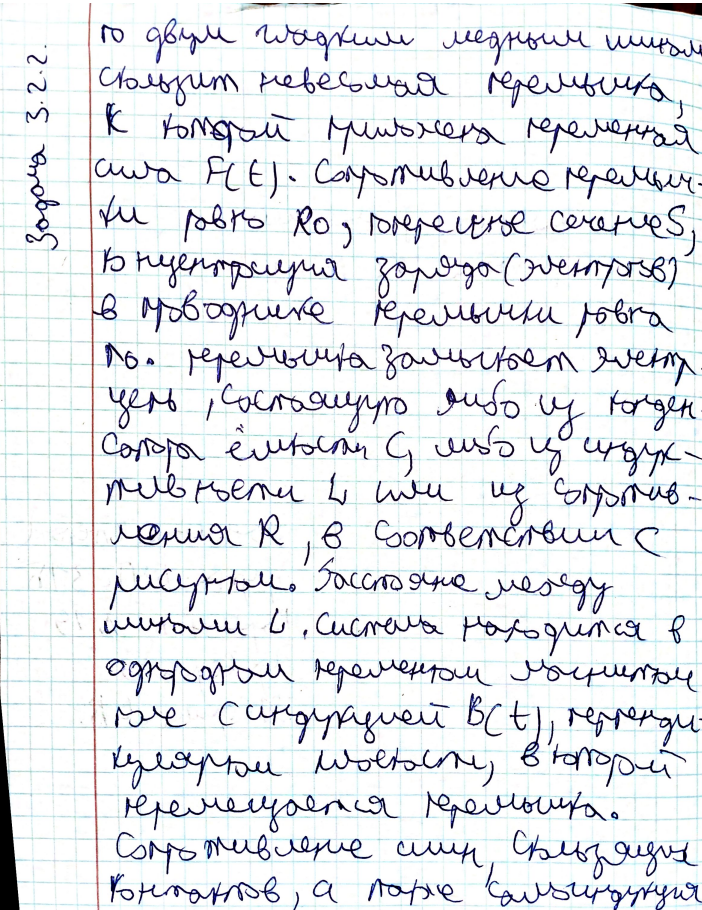 Задача 3.2.2.
по двум гладким медным шинам
скользит невесомая перемычка,
к которой приложена переменная
сила F(t). Сопротивление перемыч-
ки равно R0, поперечное сечение S,
концентрация заряда (электронов)
в проводнике перемычки равна
no. перемычка замыкает электр.
цепь, состоящую либо из конден
сатора ёмкости C, либо из индук-
тивности L или из сопротив-
ления R, в соответствии с
рисунком. Расстояние между
шинами L. Система находится в
однородном переменном магнитном
поле с индукцией B(t), перпенди-
кулярном плоскости, в которой
перемещается перемычка.
Сопротивление шин, скользящих
контактов, а также самоиндукция